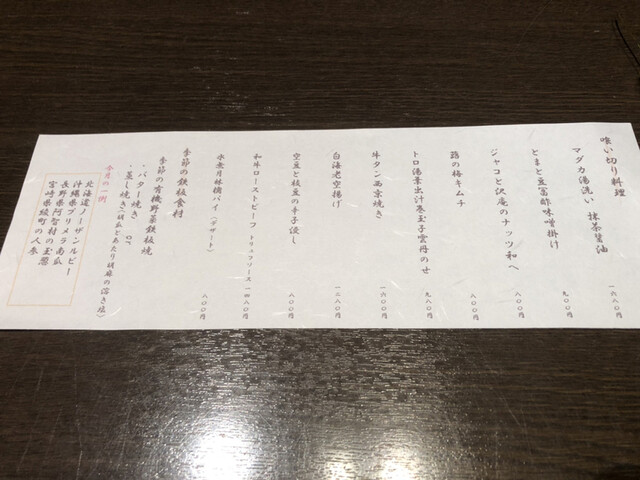 喰い切り料理
マダカ湯洗い 抹茶醤油 一六八〇円
とまと豆富酢味噌掛け 九〇〇円
ジャコと沢庵のナッツ和へ 八〇〇円
蕗の梅キムチ 八〇〇円
トロ湯葉出汁巻玉子雲丹のせ 九八〇円
牛タン西京焼き 一六〇〇円
白海老空揚げ 一二八〇円
空豆と枝豆の辛子浸し 八〇〇円
和牛ローストビーフ トリュフソース 一四八〇円
水無月林檎パイ(デザート) 八〇〇円
季節の鉄板食材
季節の有機野菜鉄板焼
・バター焼き or
・蒸し焼き(胡瓜とあたり胡麻の溶き塩)
今月の一例
北海道ノーザンルビー
沖縄県プリメラ南瓜
長野県阿智村の玉葱
宮崎県綾町の人参